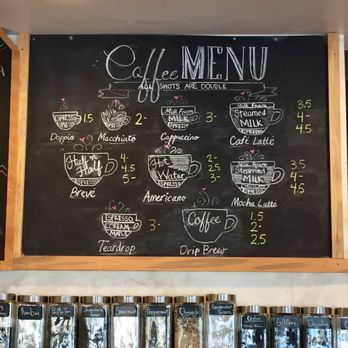 Coffee MENU
ALL SHOTS ARE DOUBLE
ESPRESSO
1.5
Doppio
ESPRESSO
2-
Macchiato
Milk Foam
MILK
ESPRESSO
3-
Cappuccino
Milk Foam
Steamed
MILK
ESPRESSO
3.5
4-
4.5
Café Latté
Half n
Half
ESPRESSO
4-
4.5
5-
Brevé
Hot
Water
ESPRESSO
2-
2.5
3-
Americano
Milk Foam
Steamed
MILK
3.5
4-
4.5
Mocha Latté
ESPRESSO
CREAM
3-
Teardrop
Coffee
1.5
2-
2.5
Drip Brew
Spearmint
Peppermint